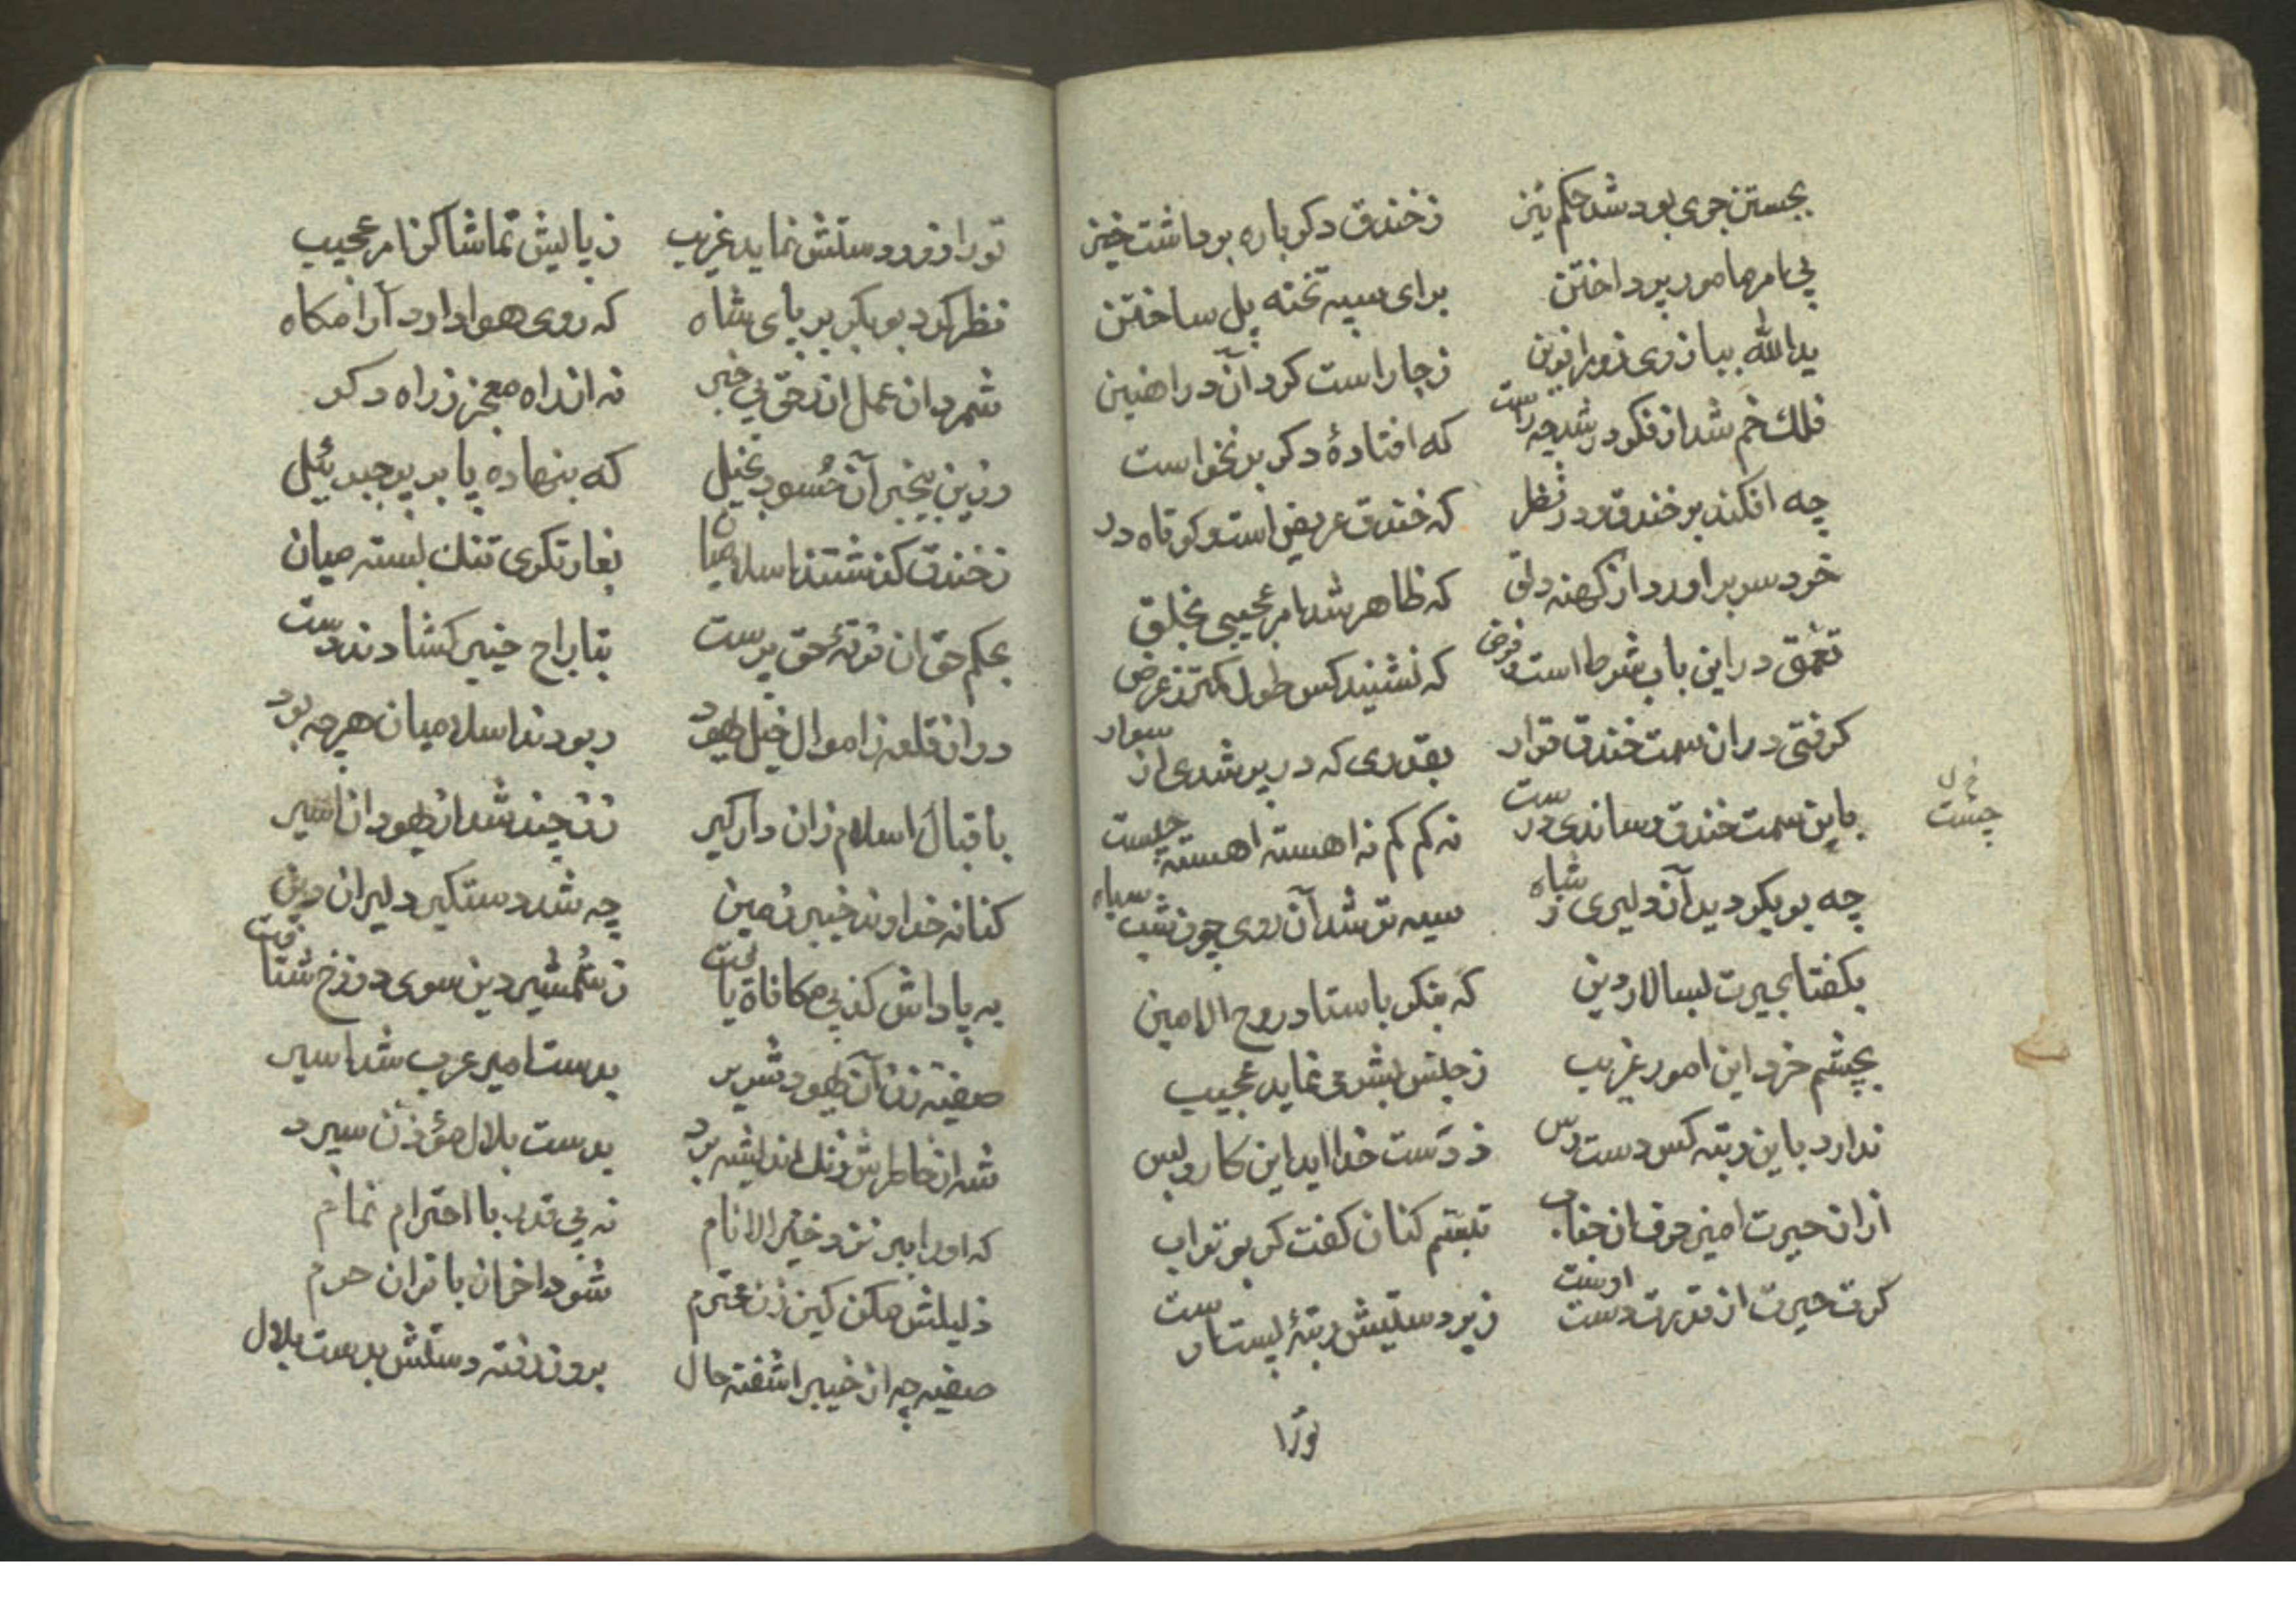 بجستن جری بود شد حکم تیز زخندق دکر باره برداشت خیز
پی امر مامور پرداختن برای سپه تخته پل ساختن
یدالله ببازوی زورآفرین زجا راست کرد آن در اهنین
فلك خم شد از فکر در شد چه راست که افتادهٔ دکر برنخواست
چه افکند بر خندق و در نظر که خندق عریض است و کوتاه در
خرد سر براورد از کهنه دلق که ظاهر شد امر عجیبی بخلق
تعمق در این باب شرط است و فرض که نشنید کس طول کمتر ز عرض
کرفتی در ان سمت خندق قرار بقدری که در پر شدی از سوار
باین سمت خندق رساندی درست نه کم کم نه اهسته اهسته چست
خ ل
چست
چه بوبکر دید آن دلیری ز شاه سیه تر شد آن روی چون شب سیاه
بکفتا بحیرت بسالار دین که بنکر باستاد روح الامین
بچشم خرد این امور غریب زجنس بشر می نماید عجیب
ندارد باین رتبه کس دست رس ز دست خدا اید این کار و بس
ازان حیرت امیز حرف ان جناب تبسّم کنان کفت کر بوتراب
کرت حیرت از قدرت دست اوست زبردستیش رتبهٔ پست اوست
تورا
تورا زور دستش نماید غریب زپایش تماشا کن امر عجیب
نظر کرد بوبکر بر پای شاه که روی هوا دارد آرامکاه
شمرد ان عمل ان زحق بی خبر نه از راه معجز ز راه دکر
وزین بیخبر آن حُسود بخیل که بنهاده پا بر پر جبرئیل
زخندق کذشتند اسلامیان بغارتکری تنك بسته میان
بحکم حق ان فرقهٔ حق پرست بتاراج خیبر کشادند دست
دران قلعه زاموال خیل یهود ربودند اسلامیان هرچه بود
باقبال اسلام زان دارکیر زن چند شد از یهودان اسیر
کنانه خداوند خیبر زمین چه شد دستکیر دلیران دین
به پاداش کذبی مکافاة یافت زشمشیر دین سوی دوزخ شتافت
صفیّه زن آن یهود شریر بدست امیر عرب شد اسیر
شه از خاطرش زنك اندیشه برد بدست بلال مؤذن سپرد
که اورا ببر نزد خیر الانام نه بی قدر با احترام تمام
ذلیلش مکن کین زن محترم شود داخل بانوان حرم
صفیه چه از خیبر اشفته حال برون رفته دستش بدست بلال